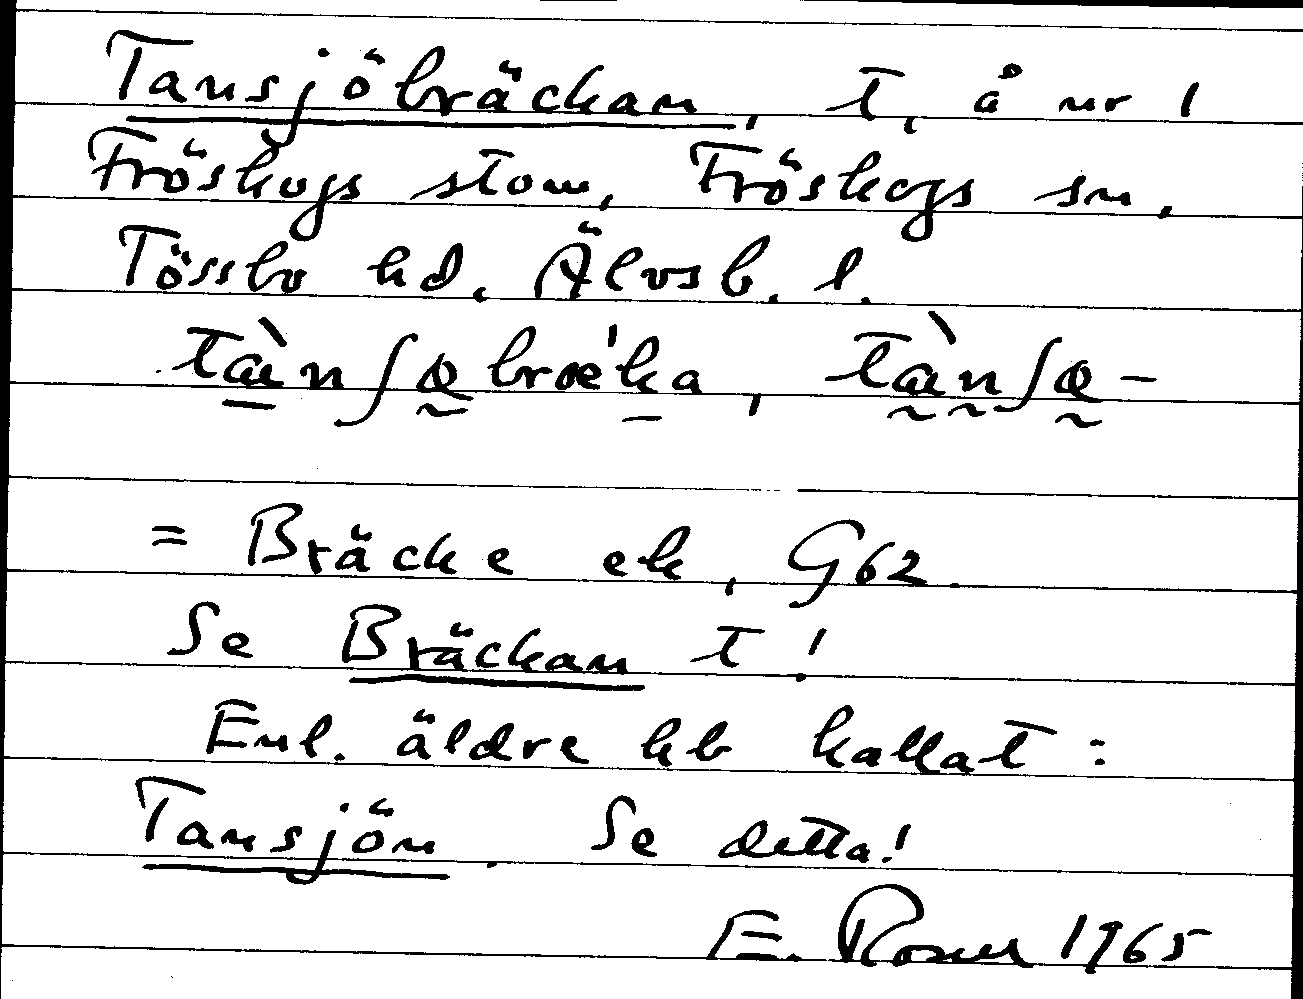 Tansjöbräckan, t, å nr 1
Fröskogs stom, Fröskogs sn,
Tössbo hd, Älvsb. l.
tànʃøbræ'ka, tànʃø-
= Bräcke ek, G62.
Se Bräckan t!
Enl. äldre kb kallat:
Tansjön. Se detta!
E. Rosell 1965